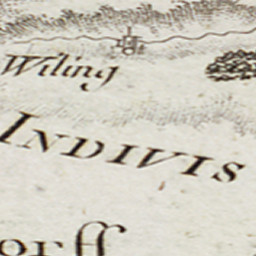 Wiling
INDIVIS
orff